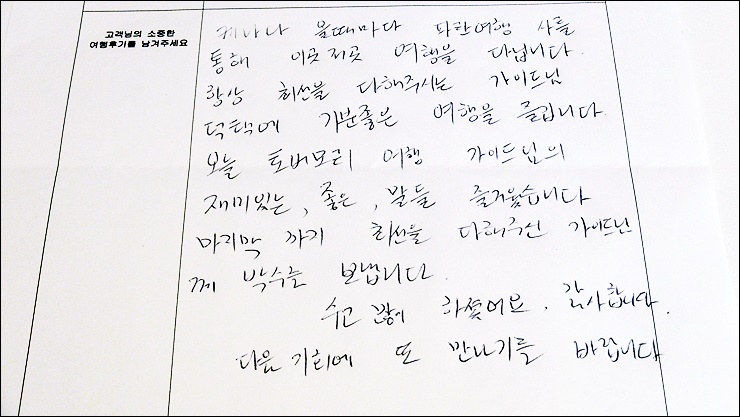 고객님의 소중한
여행후기를 남겨주세요
캐나다 올때마다 파란여행 사를
통해 이곳저곳 여행을 다닙니다.
항상 최선을 다해주시는 가이드님
덕택에 기분좋은 여행을 즐깁니다.
오늘 토버모리 여행 가이드님의
재미있는, 좋은, 말들 즐거웠습니다
마지막 까지 최선을 다해주신 가이드님
께 박수를 보냅니다.
수고 많이 하셨어요. 감사합니다.
다음 기회에 또 만나기를 바랍니다